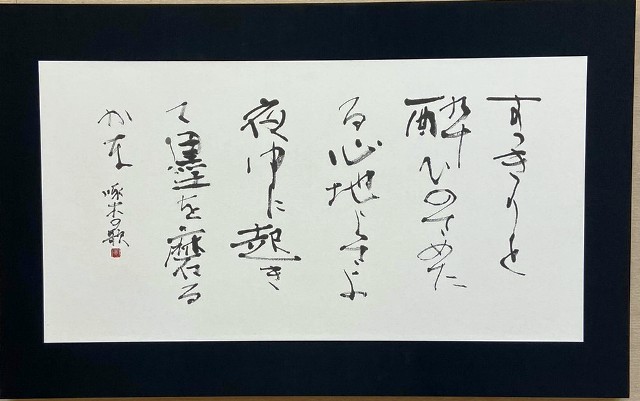 すつきりと
酔ひのさめた
る心地よさよ
夜中に起き
て墨を磨る
かな 啄木の歌